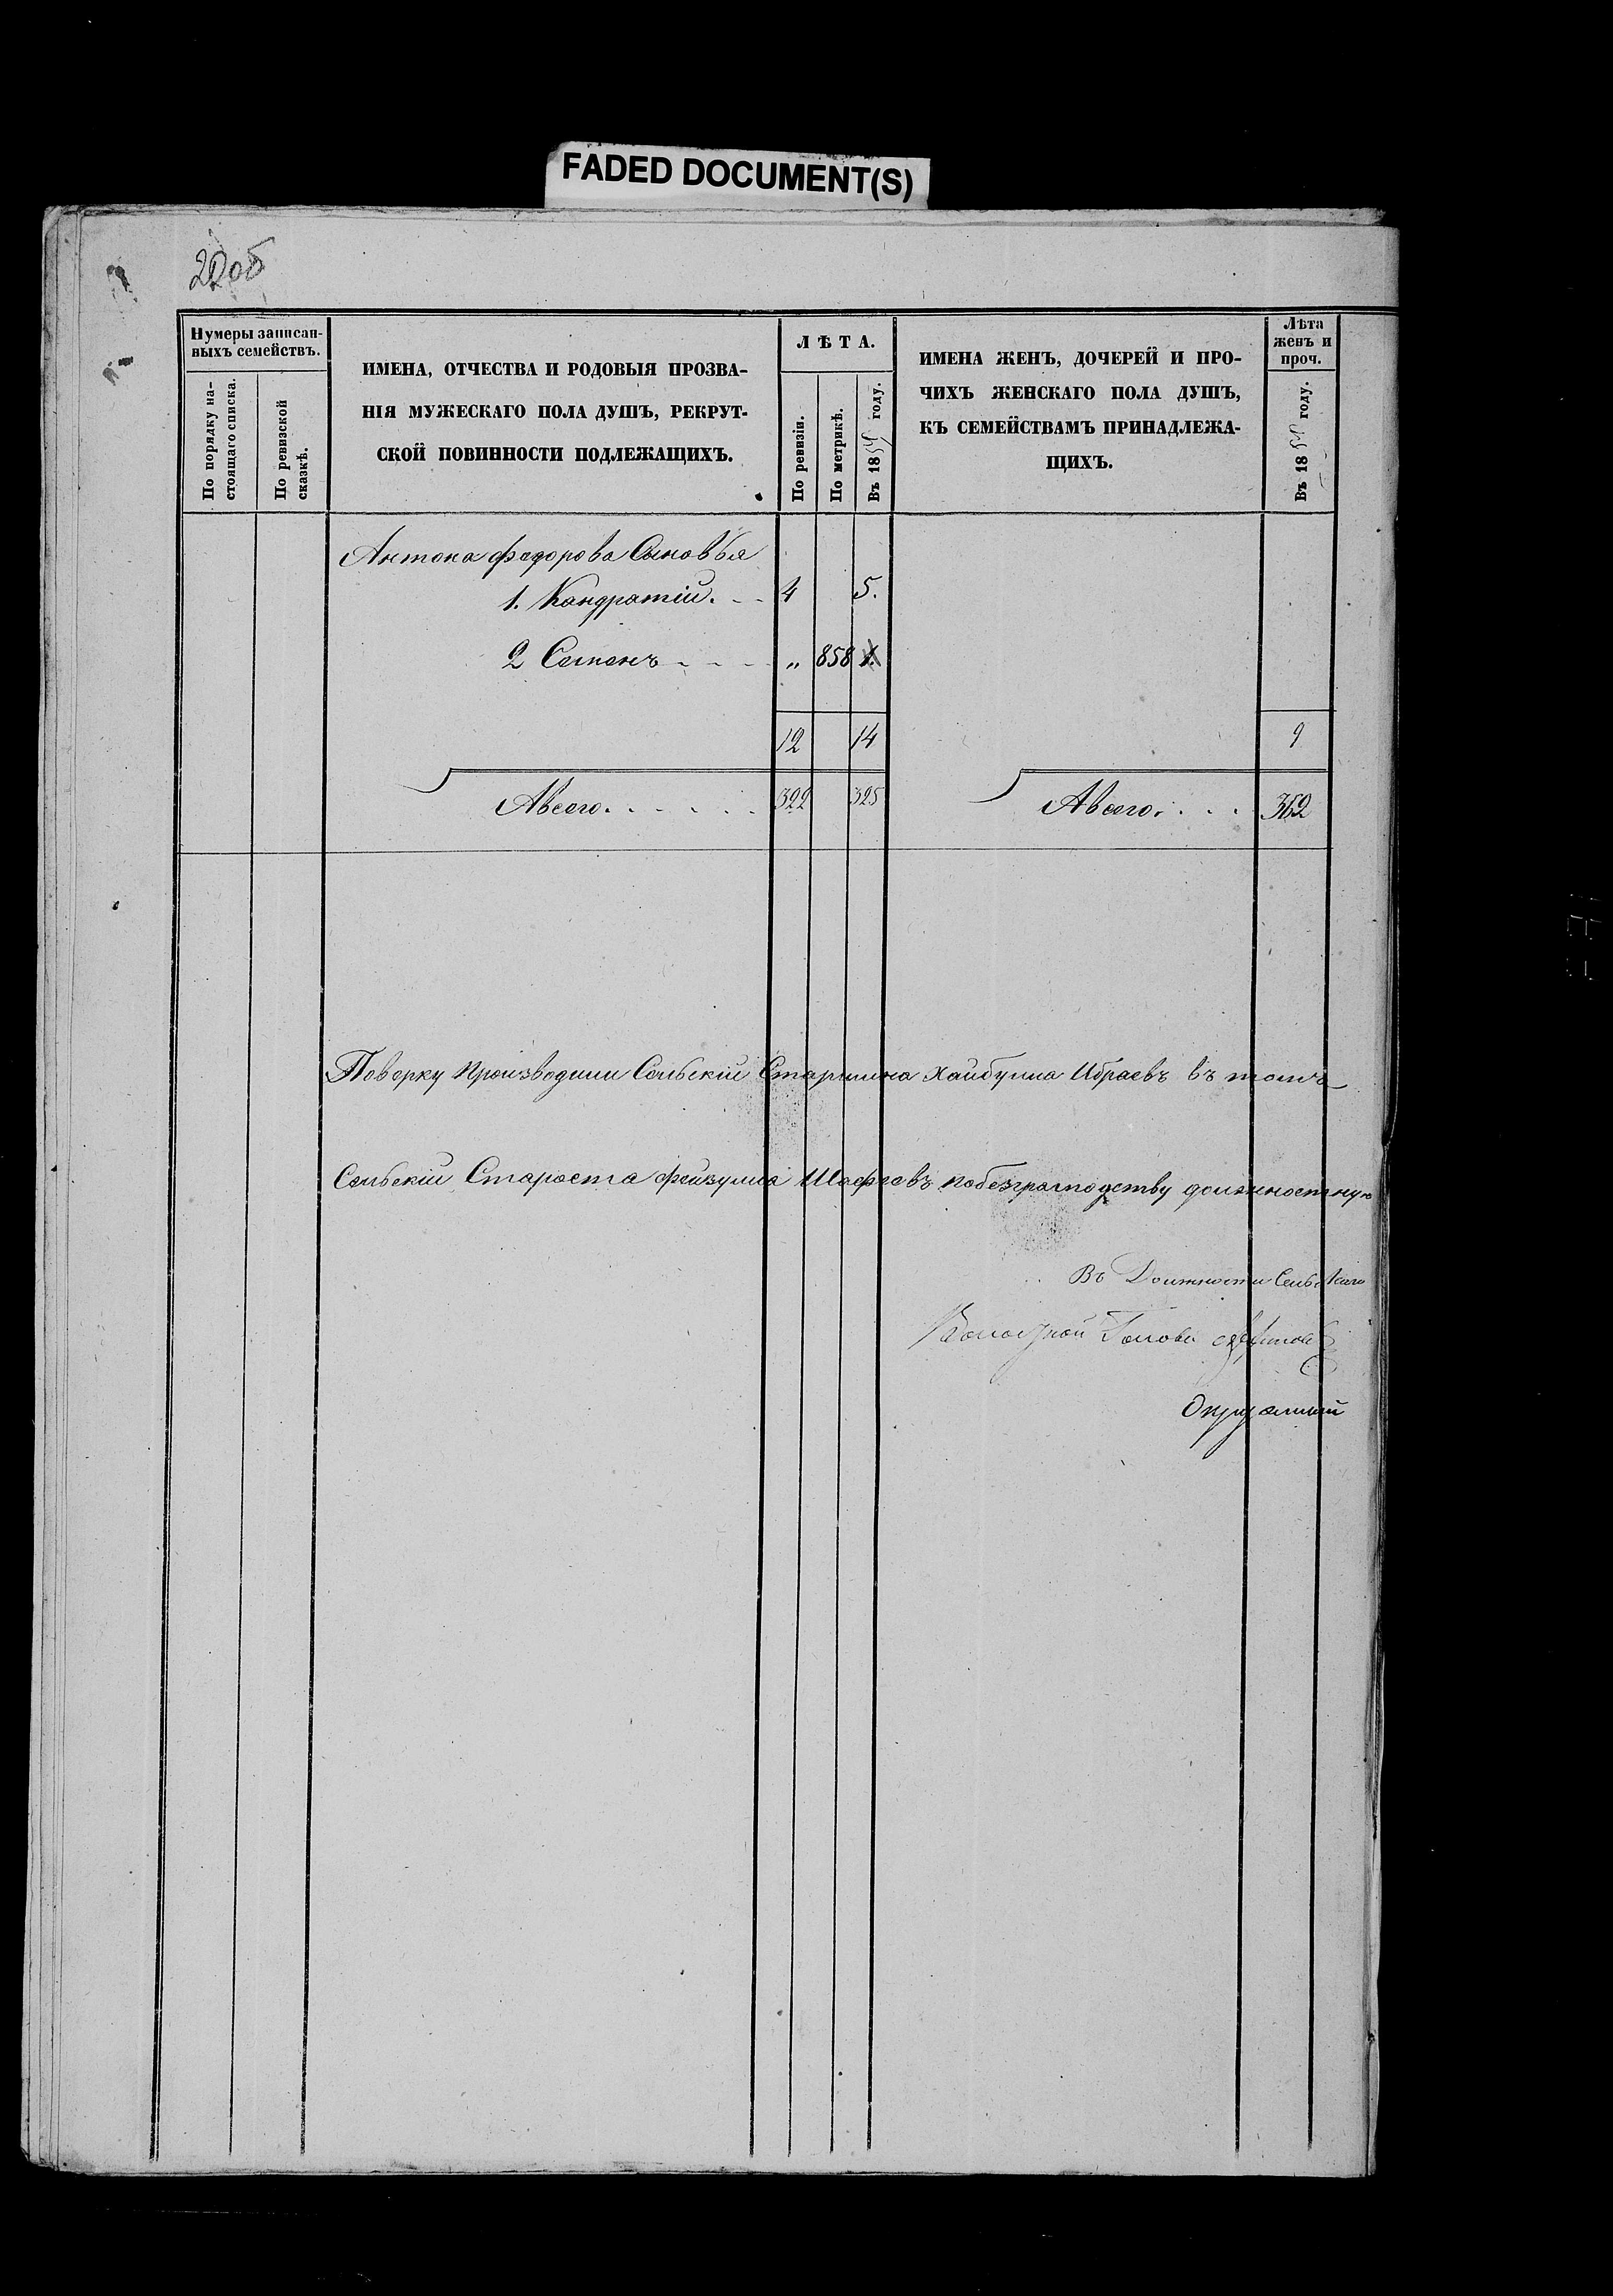 FADED DOCUMENT(S)
22об
Нумеры записан-
ныхъ семействъ.
По порядку на-
стоящаго списка.
По ревизской
сказкѣ.
ИМЕНА, ОТЧЕСТВА И РОДОВЫЯ ПРОЗВА-
НІЯ МУЖЕСКАГО ПОЛА ДУШЪ, РЕКРУТ-
СКОЙ ПОВИННОСТИ ПОДЛЕЖАЩИХЪ.
ЛѢТА.
По ревизіи.
По метрикѣ.
Въ 18 году.
ИМЕНА ЖЕНЪ, ДОЧЕРЕЙ И ПРО-
ЧИХЪ ЖЕНСКАГО ПОЛА ДУШЪ,
КЪ СЕМЕЙСТВАМЪ ПРИНАДЛЕЖА-
ЩИХЪ.
Лѣта
женъ и
проч.
Въ 18 году.
Антона Федорова Сыновья
1. Кандратій. 4 5.
2 Семенъ „ 858 1.
12 14 9
Авсего 322 325 Авсего 362
Поверку Производили Сельскіи Старшина Хайбулла Ибраевъ въ томъ
Сельскіи Староста Фейзулла побезграмодству должностную
Въ Должности Сельскаго
Волостной Голова
Окружный